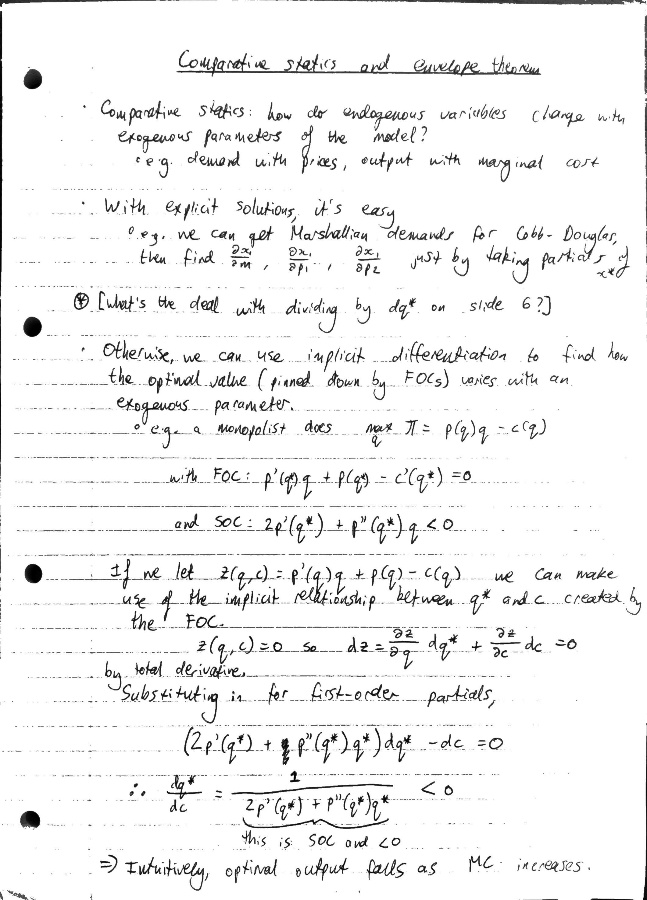 Comparative statics and envelope theorem
· Comparative statics: how do endogenous variables change with
exogenous parameters of the model?
∘ e.g. demand with prices, output with marginal cost
· With explicit solutions, it's easy
∘ e.g. we can get Marshallian demands for Cobb-Douglas,
then find ∂x₁/∂m, ∂x₁/∂p₁, ∂x₁/∂p₂ just by taking partials of
x*
⊛ [What's the deal with dividing by dq* on slide 6?]
· Otherwise, we can use implicit differentiation to find how
the optimal value (pinned down by FOCs) varies with an
exogenous parameter.
∘ e.g. a monopolist does max_q π = p(q)q - c(q)
with FOC: p'(q*)q + p(q*) - c'(q*) = 0
and SOC: 2p'(q*) + p''(q*)q < 0
If we let z(q,c) = p'(q)q + p(q) - c(q) we can make
use of the implicit relationship between q* and c created by
the FOC.
z(q,c) = 0 so dz = ∂z/∂q dq* + ∂z/∂c dc = 0
by total derivative.
Substituting in for first-order partials,
(2p'(q*) + p''(q*)q*)dq* - dc = 0
∴ dq*/dc = 1/(2p'(q*) + p''(q*)q*) < 0
this is SOC and <0
⇒ Intuitively, optimal output falls as MC increases.